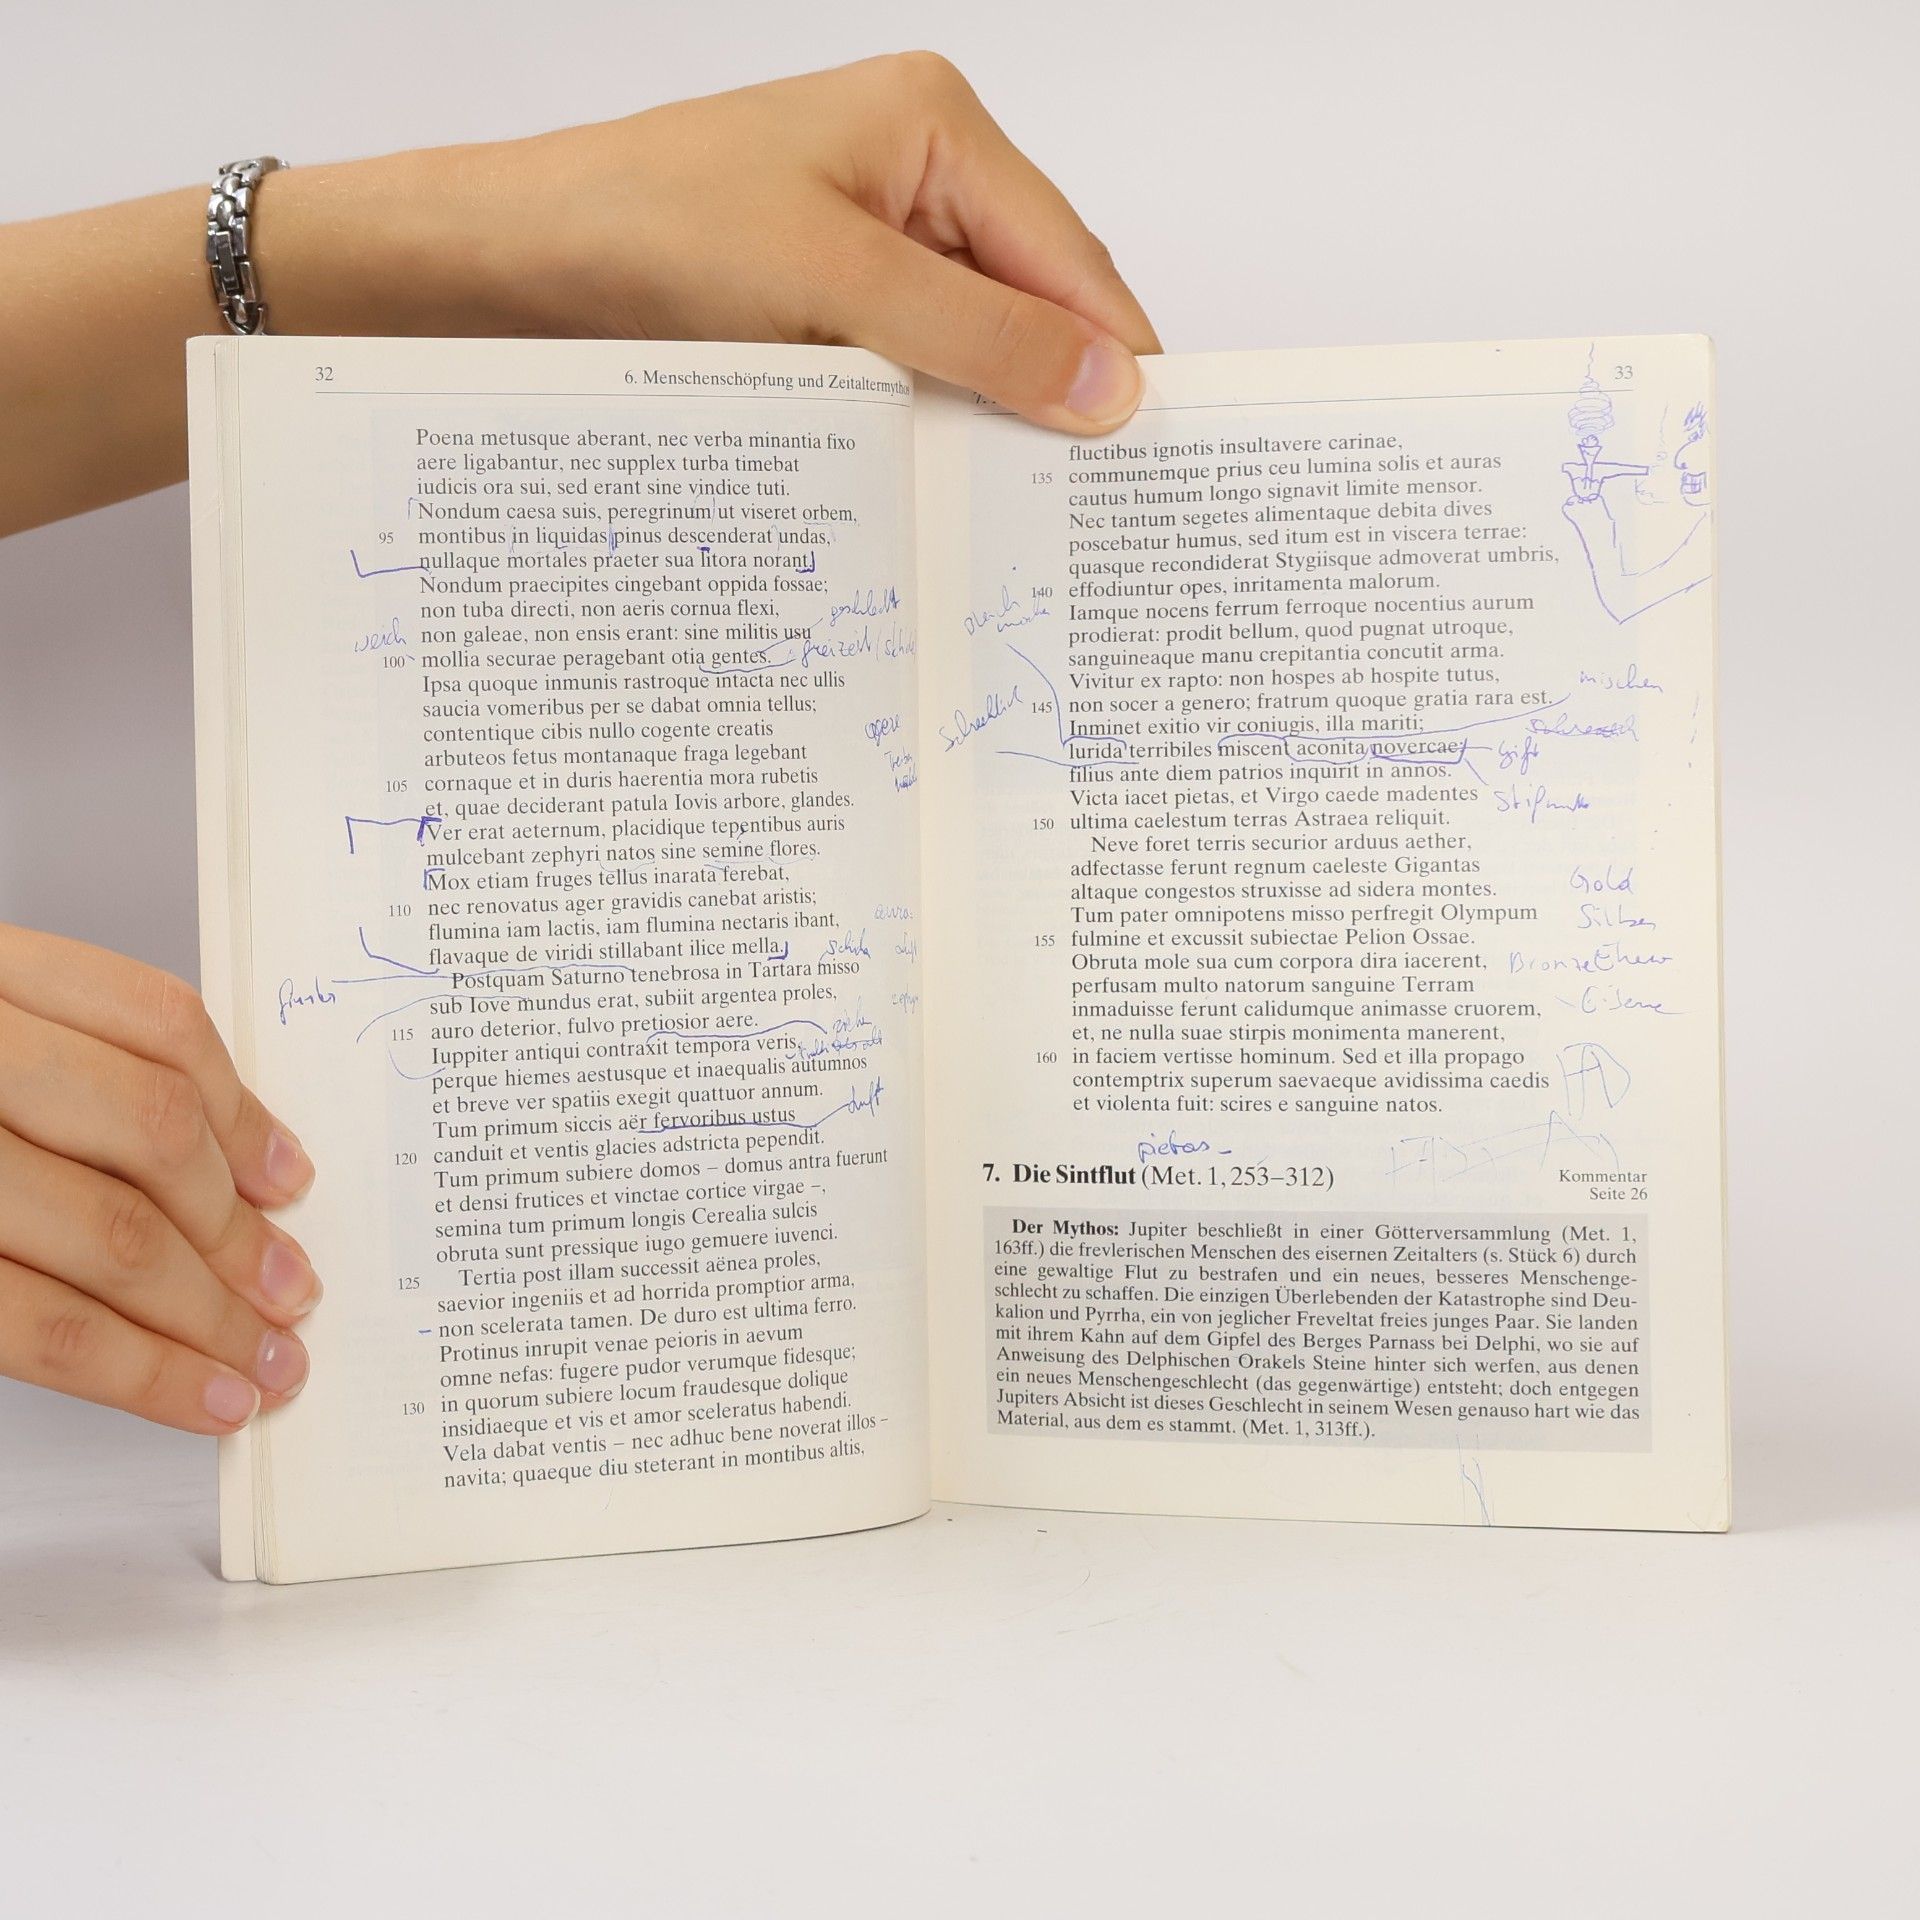 32
6. Menschenschöpfung und Zeitaltermythos
Poena metusque aberant, nec verba minantia fixo
aere ligabantur, nec supplex turba timebat
iudicis ora sui, sed erant sine vindice tuti.
Nondum caesa suis, peregrinum ut viseret orbem,
95 montibus in liquidas pinus descenderat undas,
nullaque mortales praeter sua litora norant.
Nondum praecipites cingebant oppida fossae;
non tuba directi, non aeris cornua flexi,
geschlecht
weich
non galeae, non ensis erant: sine militis usu
100 mollia securae peragebant otia gentes.
freizeit
Ipsa quoque inmunis rastroque intacta nec ullis
saucia vomeribus per se dabat omnia tellus;
contentique cibis nullo cogente creatis
arbuteos fetus montanaque fraga legebant
105 cornaque et in duris haerentia mora rubetis
et, quae deciderant patula Iovis arbore, glandes.
Ver erat aeternum, placidique tepentibus auris
mulcebant zephyri natos sine semine flores.
Mox etiam fruges tellus inarata ferebat,
110 nec renovatus ager gravidis canebat aristis;
flumina iam lactis, iam flumina nectaris ibant,
flavaque de viridi stillabant ilice mella.
Postquam Saturno tenebrosa in Tartara misso
sub Iove mundus erat, subiit argentea proles,
115 auro deterior, fulvo pretiosior aere.
Iuppiter antiqui contraxit tempora veris
perque hiemes aestusque et inaequalis autumnos
et breve ver spatiis exegit quattuor annum.
Tum primum siccis aër fervoribus ustus
duft
120 canduit et ventis glacies adstricta pependit.
Tum primum subiere domos – domus antra fuerunt
et densi frutices et vinctae cortice virgae –,
semina tum primum longis Cerealia sulcis
obruta sunt pressique iugo gemuere iuvenci.
125 Tertia post illam successit aënea proles,
saevior ingeniis et ad horrida promptior arma,
non scelerata tamen. De duro est ultima ferro.
Protinus inrupit venae peioris in aevum
omne nefas: fugere pudor verumque fidesque;
130 in quorum subiere locum fraudesque dolique
insidiaeque et vis et amor sceleratus habendi.
Vela dabat ventis – nec adhuc bene noverat illos –
navita; quaeque diu steterant in montibus altis,
33
fluctibus ignotis insultavere carinae,
135 communemque prius ceu lumina solis et auras
cautus humum longo signavit limite mensor.
Nec tantum segetes alimentaque debita dives
poscebatur humus, sed itum est in viscera terrae:
quasque recondiderat Stygiisque admoverat umbris,
140 effodiuntur opes, inritamenta malorum.
Iamque nocens ferrum ferroque nocentius aurum
prodierat: prodit bellum, quod pugnat utroque,
sanguineaque manu crepitantia concutit arma.
Vivitur ex rapto: non hospes ab hospite tutus,
mischen
145 non socer a genero; fratrum quoque gratia rara est.
schrecklich
Inminet exitio vir coniugis, illa mariti;
lurida terribiles miscent aconita novercae;
gift
filius ante diem patrios inquirit in annos.
Victa iacet pietas, et Virgo caede madentes
150 ultima caelestum terras Astraea reliquit.
Neve foret terris securior arduus aether,
adfectasse ferunt regnum caeleste Gigantas
altaque congestos struxisse ad sidera montes.
Gold
Tum pater omnipotens misso perfregit Olympum
Silber
155 fulmine et excussit subiectae Pelion Ossae.
Obruta mole sua cum corpora dira iacerent,
Bronze
perfusam multo natorum sanguine Terram
inmaduisse ferunt calidumque animasse cruorem,
et, ne nulla suae stirpis monimenta manerent,
160 in faciem vertisse hominum. Sed et illa propago
contemptrix superum saevaeque avidissima caedis
et violenta fuit: scires e sanguine natos.
pietas
7. Die Sintflut (Met. 1, 253–312)
Kommentar
Seite 26
Der Mythos: Jupiter beschließt in einer Götterversammlung (Met. 1,
163ff.) die frevlerischen Menschen des eisernen Zeitalters (s. Stück 6) durch
eine gewaltige Flut zu bestrafen und ein neues, besseres Menschenge-
schlecht zu schaffen. Die einzigen Überlebenden der Katastrophe sind Deu-
kalion und Pyrrha, ein von jeglicher Freveltat freies junges Paar. Sie landen
mit ihrem Kahn auf dem Gipfel des Berges Parnass bei Delphi, wo sie auf
Anweisung des Delphischen Orakels Steine hinter sich werfen, aus denen
ein neues Menschengeschlecht (das gegenwärtige) entsteht; doch entgegen
Jupiters Absicht ist dieses Geschlecht in seinem Wesen genauso hart wie das
Material, aus dem es stammt. (Met. 1, 313ff.).